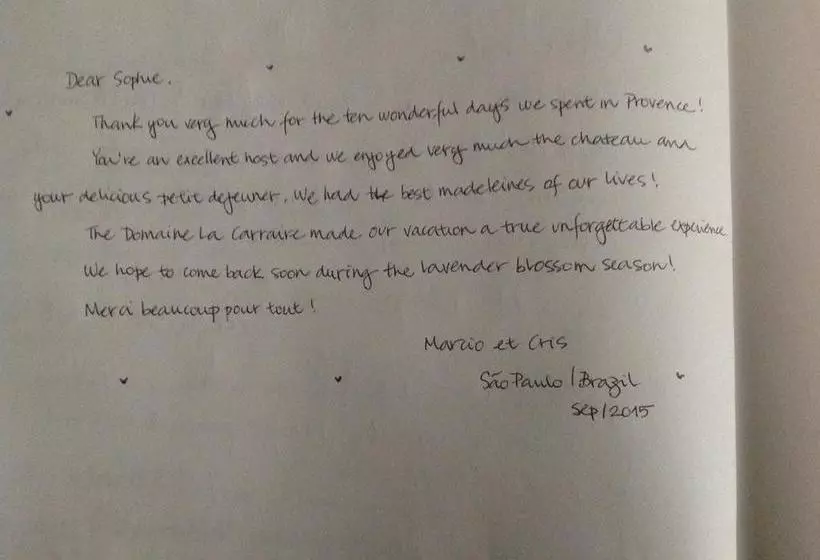 Dear Sophie.
Thank you very much for the ten wonderful days we spent in Provence!
You're an excellent host and we enjoyed very much the chateau and
your delicious petit dejeuner. We had the best madeleines of our lives!
The Domaine La Carraire made our vacation a true unforgettable experience
We hope to come back soon during the lavender blossom season!
Merci beaucoup pour tout!
Marcio et Cris
São Paulo/Brazil
Sep/2015